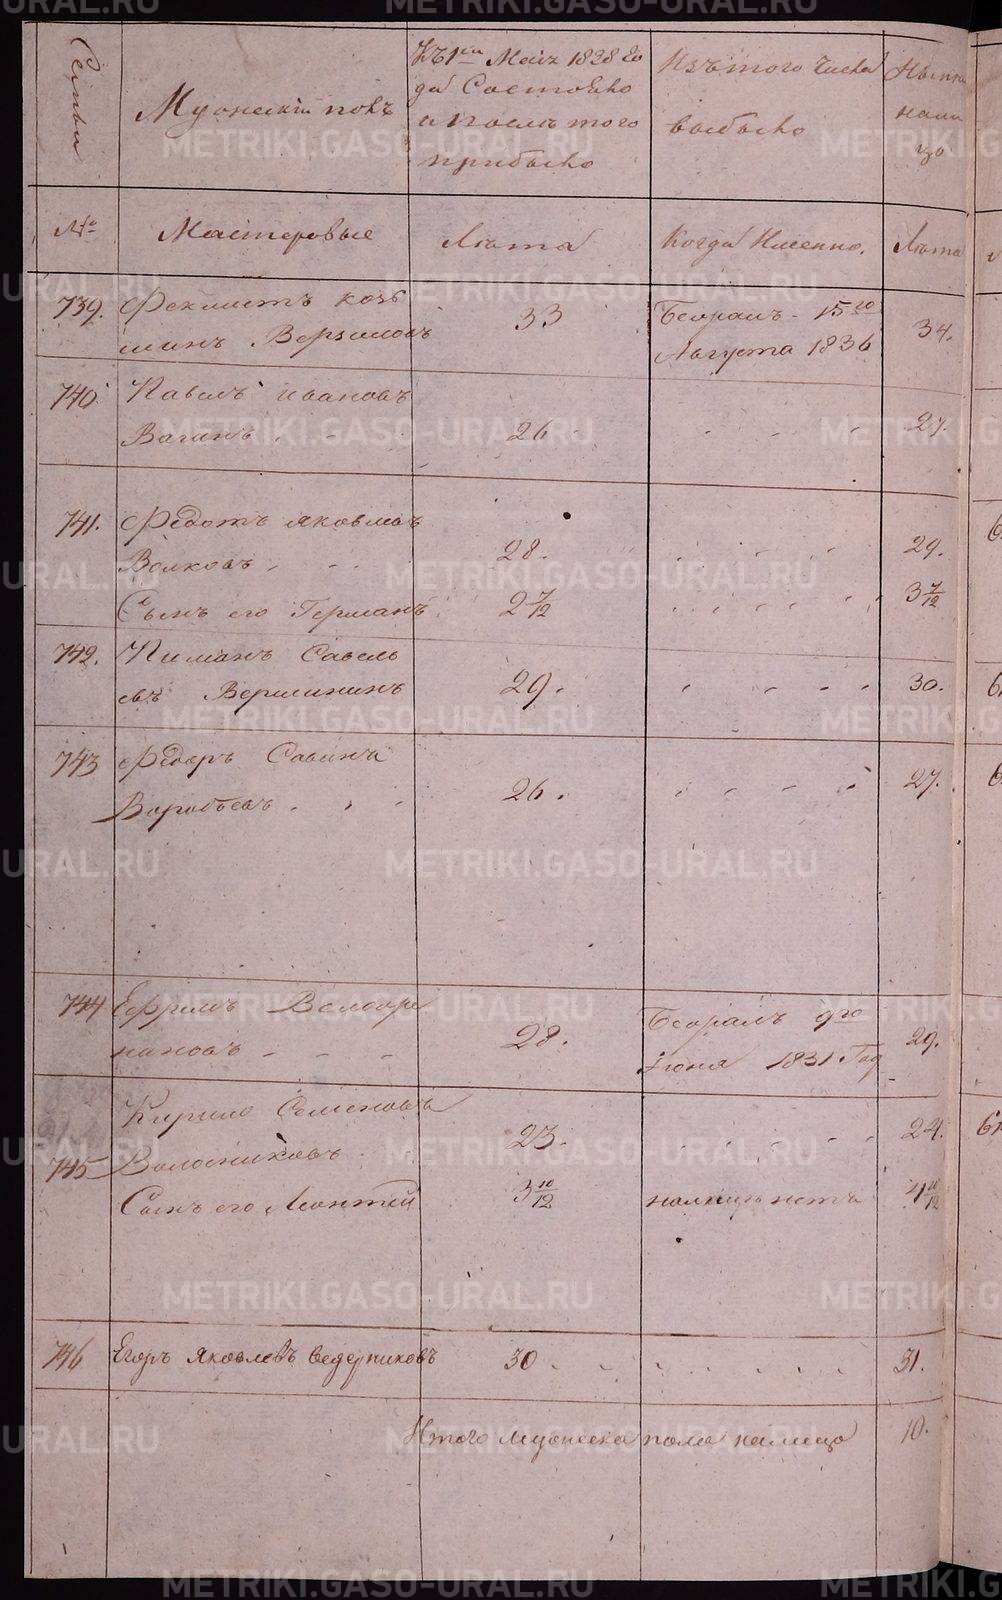 Семьи
Мужескiй полъ
Къ 1му Маiя 1838 го
да Состояло
и послѣ того
прибыло
Изъ того числа
выбыло
Нынѣ
нали
цо
№
Мастеровые
Лѣта
Когда Именно.
Лѣта
739. Феклистъ козь 33 Бѣжалъ 15го 34.
минъ Августа 1836
740 Павелъ ивановъ
Вагинъ 26 27.
741. Федотъ яковлевъ
Волковъ 28. 29.
Сынъ его Германъ 2 7/12 3 7/12
742. Пиманъ Савель
евъ Вершининъ 29. 30.
743 Федоръ Савинъ
Воробьевъ 26. 27.
744 Ефимъ 28. 29.
Бѣжалъ 9го
Iюня 1831 Год
Кирило Семеновъ 23. 24.
745 Волосниковъ
Сынъ его Леонтей 3 10/12 налицо нетъ 4 10/12
746 Егоръ Яковлевъ Ведерниковъ 30 31.
Итого мужеска пола налицо 10.
METRIKI.GASO-URAL.RU